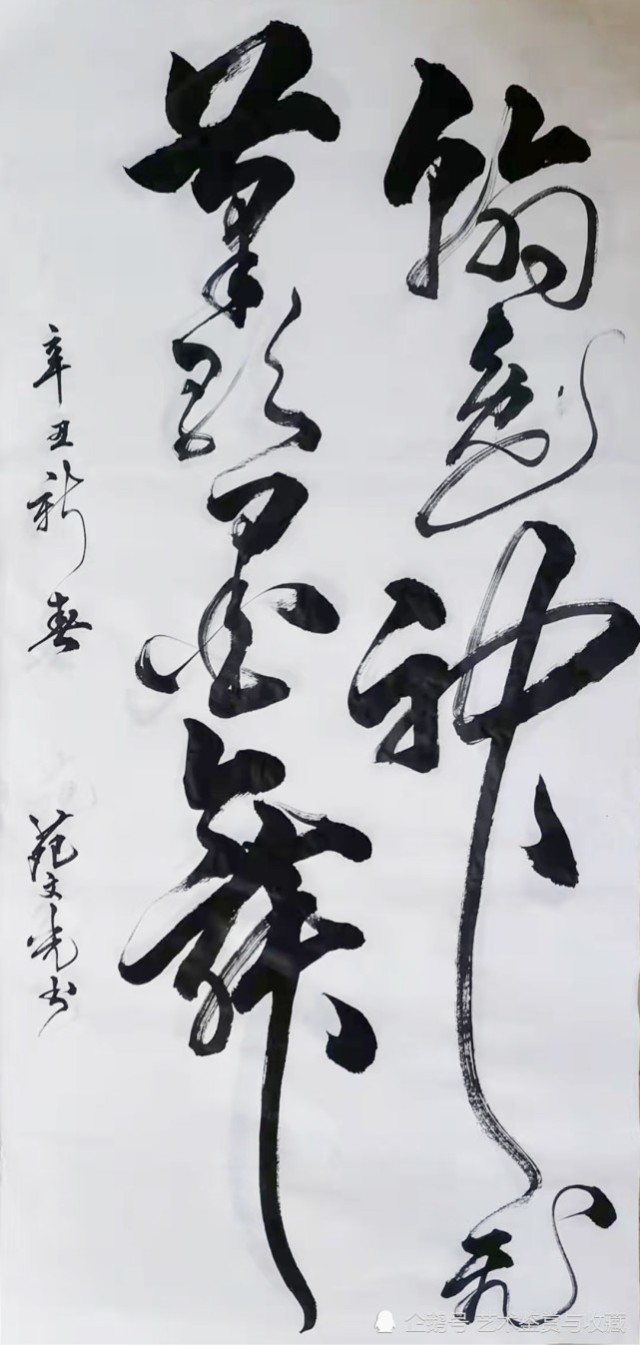 翰逸神飛
筆歌墨舞
辛丑新春
苑文光书
企鹅号 艺术鉴赏与收藏